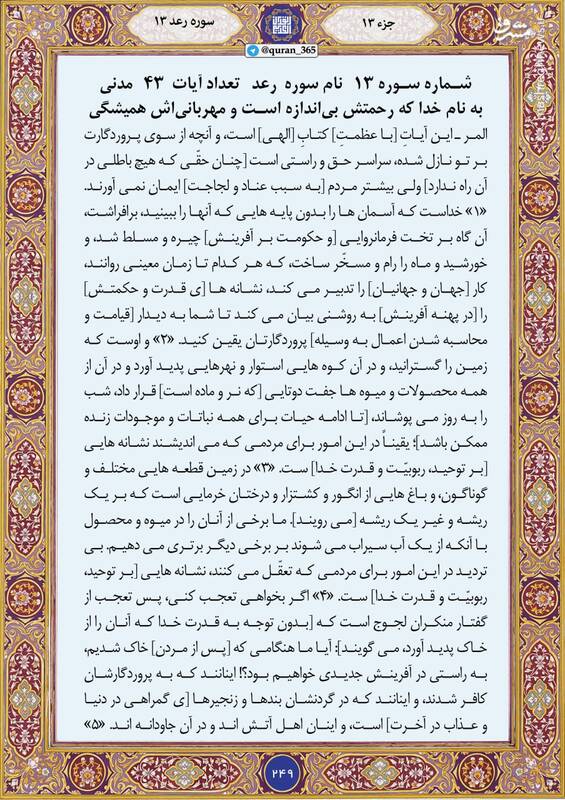 جزء ۱۳
سوره رعد ۱۳
@quran_365
شـماره سـوره ۱۳ نام سوره رعد تعداد آیات ۴۳ مدنی
به نام خدا که رحمتش بی‌اندازه اسـت و مهربانی‌اش همیشگی
المر ـ این آیاتِ [با عظمتِ] کتابِ [الهی] است، و آنچه از سوی پروردگارت
بر تو نازل شده، سراسر حق و راستی است [چنان حقّی که هیچ باطلی در
آن راه ندارد] ولی بیشتر مردم [به سبب عناد و لجاجت] ایمان نمی آورند.
«۱» خداست که آسمان ها را بدون پایه هایی که آنها را ببینید، برافراشت،
آن گاه بر تخت فرمانروایی [و حکومت بر آفرینش] چیره و مسلط شد، و
خورشید و ماه را رام و مسخّر ساخت، که هر کدام تا زمان معینی روانند،
کار [جهان و جهانیان] را تدبیر می کند، نشانه ها [ی قدرت و حکمتش]
را [در پهنه آفرینش] به روشنی بیان می کند تا شما به دیدار [قیامت و
محاسبه شدن اعمال به وسیله] پروردگارتان یقین کنید. «۲» و اوست که
زمین را گسترانید، و در آن کوه هایی استوار و نهرهایی پدید آورد و در آن از
همه محصولات و میوه ها جفت دوتایی [که نر و ماده است] قرار داد، شب
را به روز می پوشاند، [تا ادامه حیات برای همه نباتات و موجودات زنده
ممکن باشد]؛ یقیناً در این امور برای مردمی که می اندیشند نشانه هایی
[بر توحید، ربوبیّت و قدرت خدا] ست. «۳» در زمین قطعه هایی مختلف و
گوناگون، و باغ هایی از انگور و کشتزار و درختان خرمایی است که بر یک
ریشه و غیر یک ریشه [می رویند]. ما برخی از آنان را در میوه و محصول
با آنکه از یک آب سیراب می شوند بر برخی دیگر برتری می دهیم. بی
تردید در این امور برای مردمی که تعقل می کنند، نشانه هایی [بر توحید،
ربوبیّت و قدرت خدا] ست. «۴» اگر بخواهی تعجب کنی، پس تعجب از
گفتار منکران لجوج است که [بدون توجه به قدرت خدا که آنان را از
خاک پدید آورد، می گویند]: آیا ما هنگامی که [پس از مردن] خاک شدیم،
به راستی در آفرینش جدیدی خواهیم بود؟! اینانند که به پروردگارشان
کافر شدند، و اینانند که در گردنشان بندها و زنجیرها [ی گمراهی در دنیا
و عذاب در آخرت] است، و اینان اهل آتش اند و در آن جاودانه اند. «۵»
۲۴۹